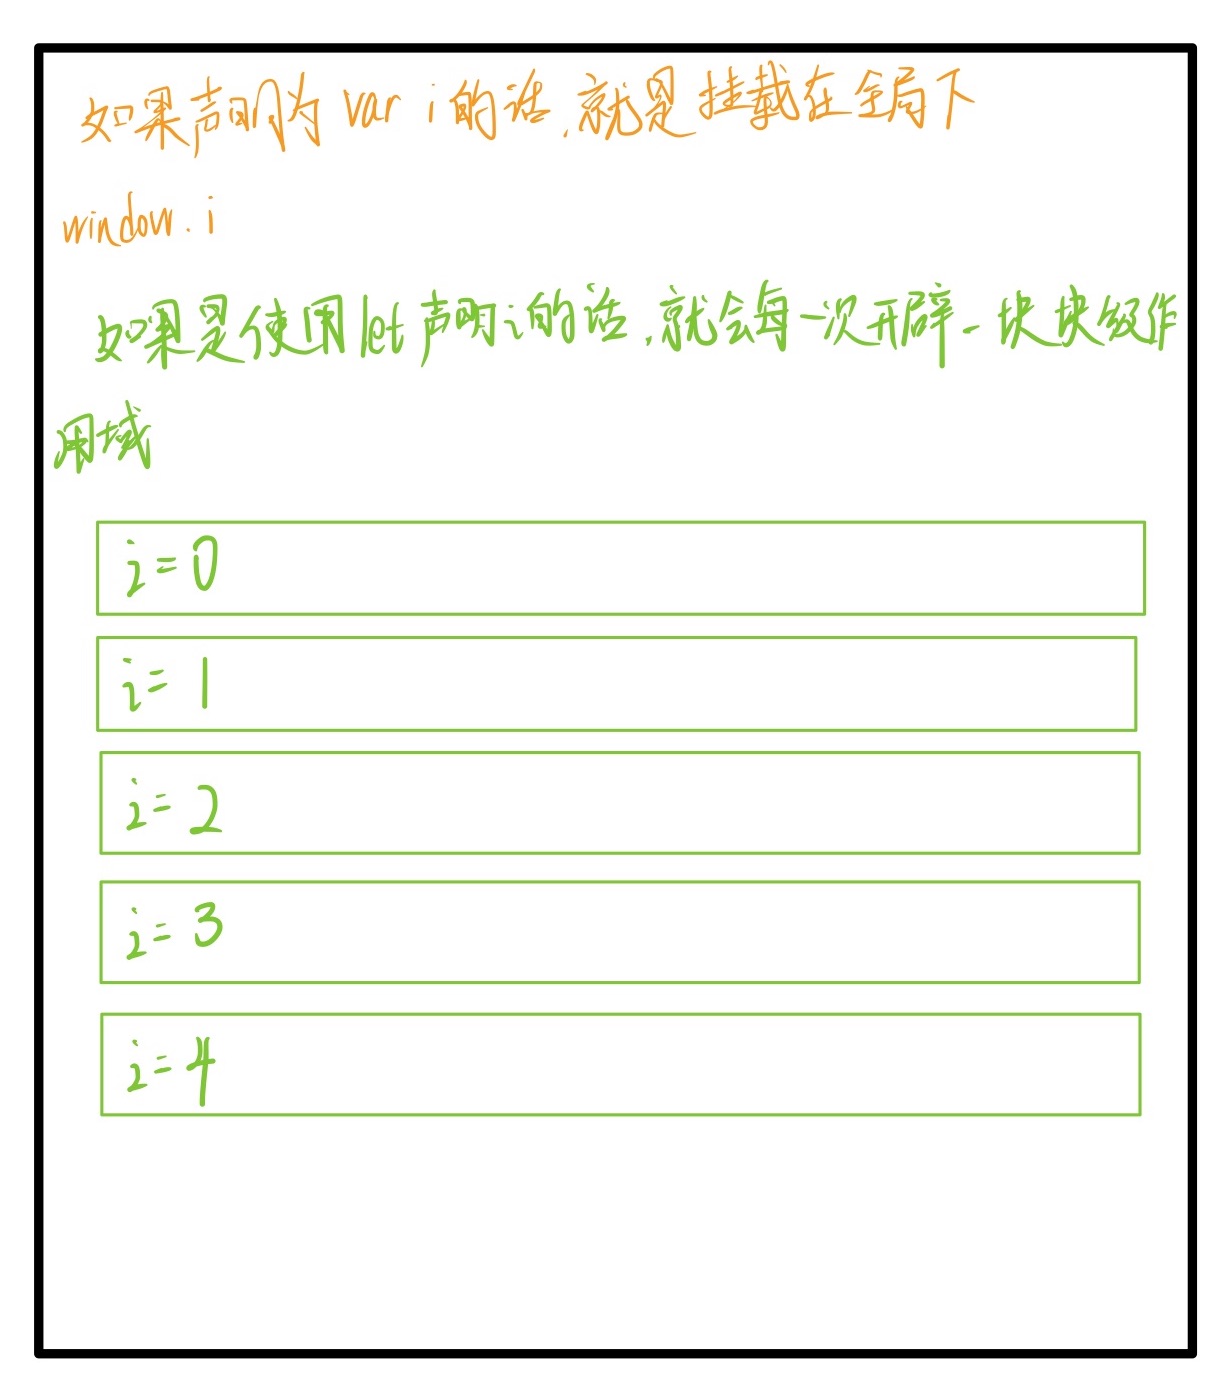 如果声明为 var i 的话,就是挂载在全局下
window.i
如果是使用let声明i的话,就会每一次开辟一块块级作
用域
i=0
i=1
i=2
i=3
i=4